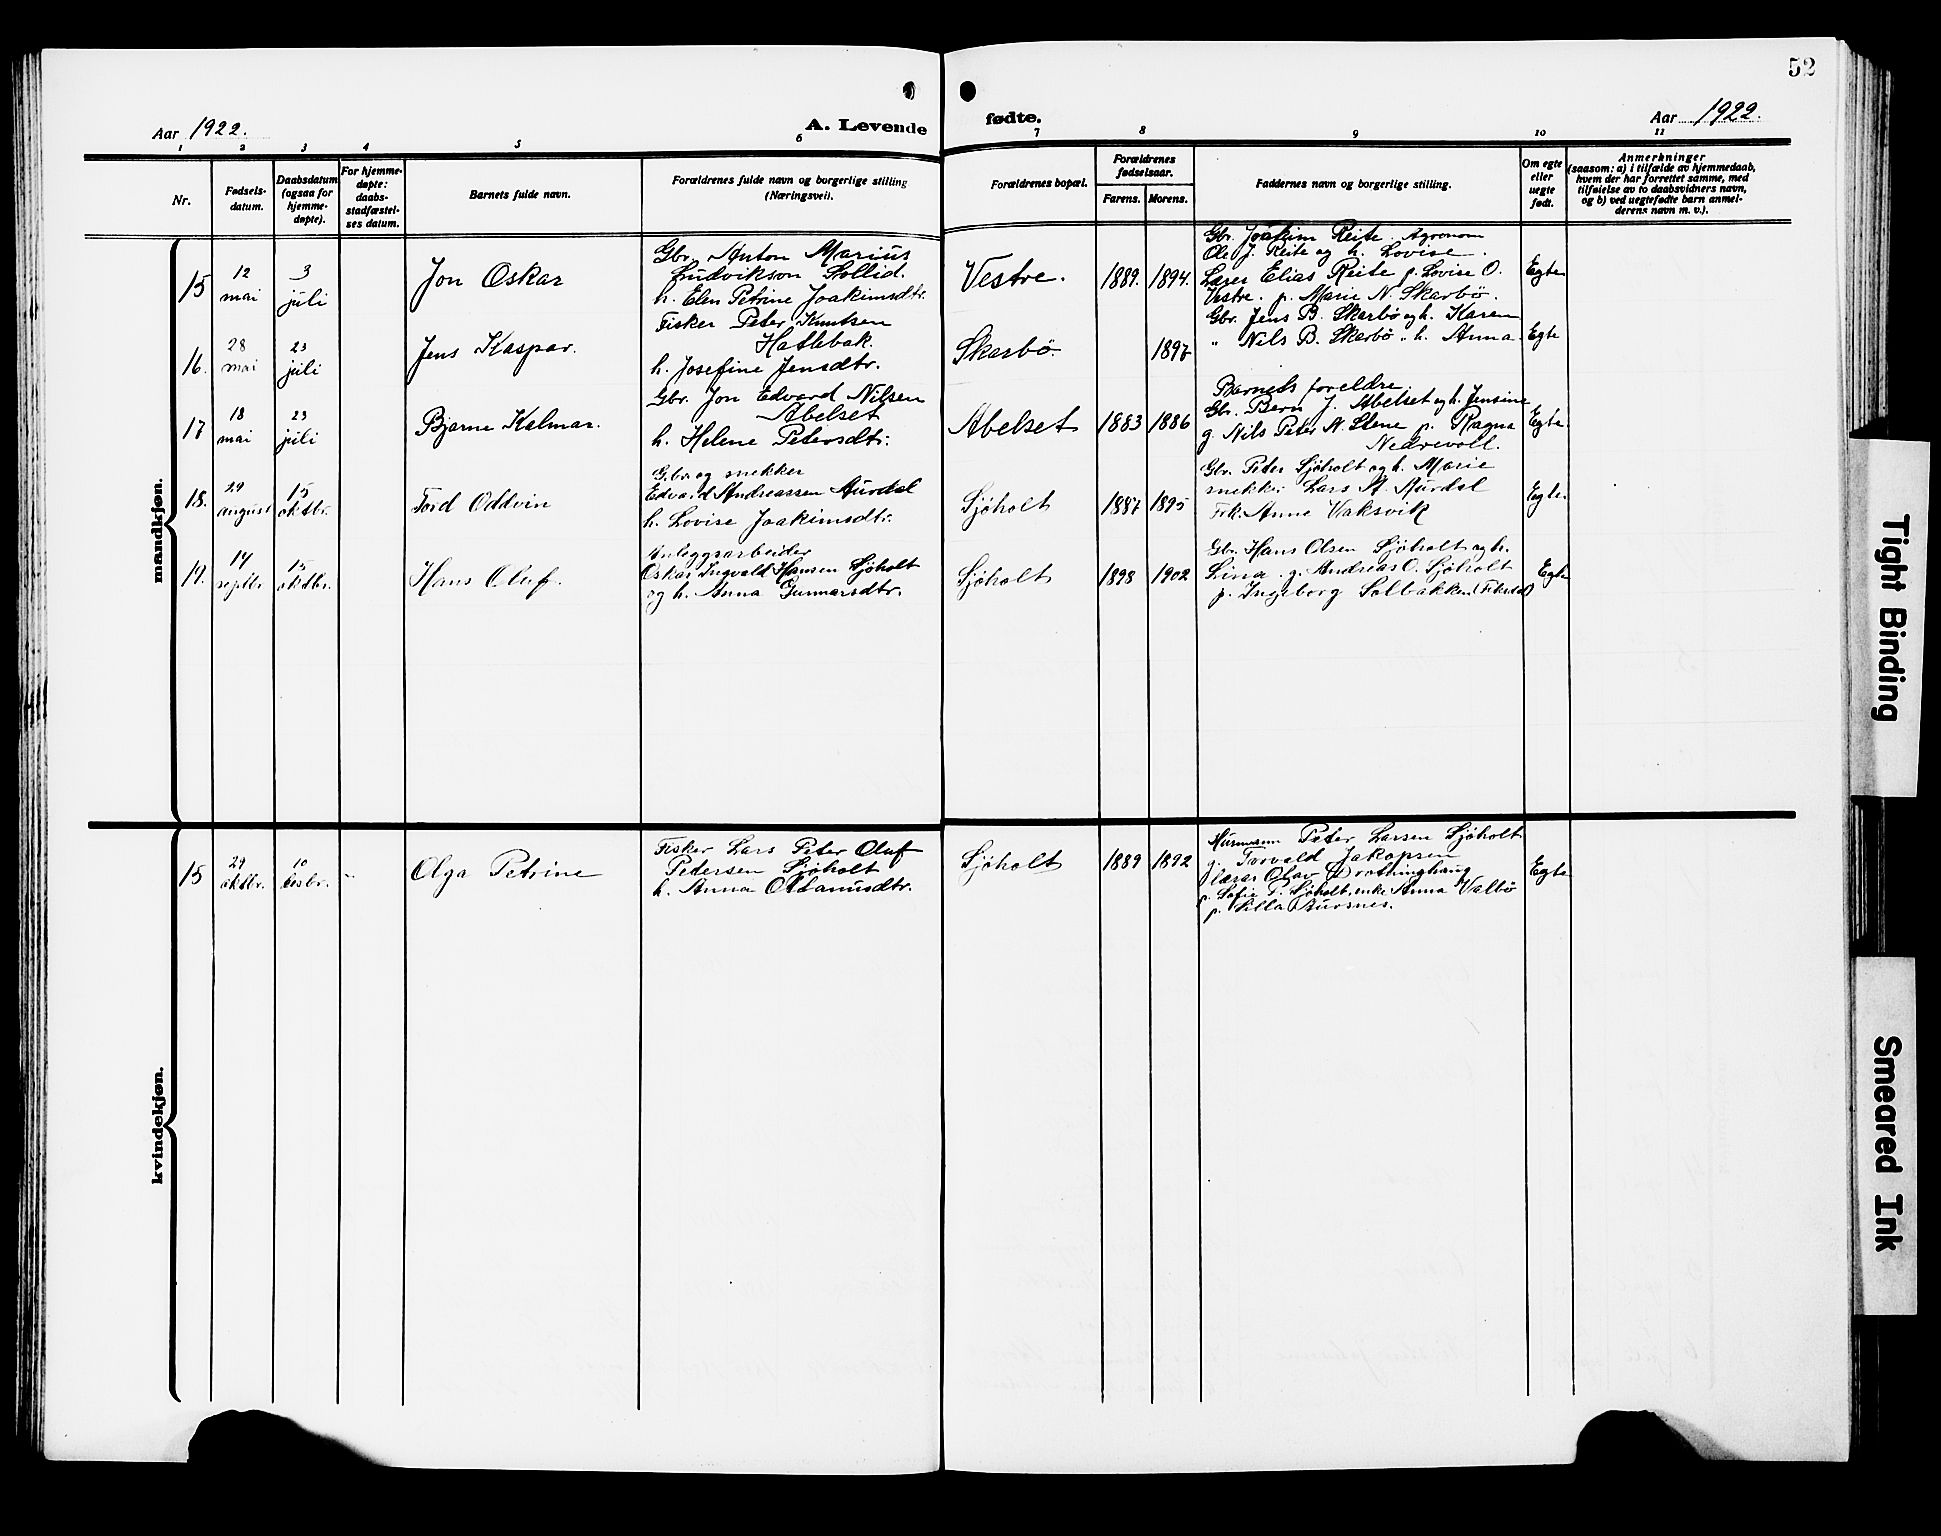 52
Aar 1922.
A. Levende fødte.
Aar 1922.
1 2 3 4 5 6 7 8 9 10 11
Nr.
Fødsels-
datum.
Daabsdatum
(ogsaa for
hjemme-
døpte).
For hjemme-
døpte:
daabs-
stadfæstel-
ses datum.
Barnets fulde navn.
Forældrenes fulde navn og borgerlige stilling
(Næringsvei).
Forældrenes bopæl.
Forældrenes
fødselsaar.
Farens. Morens.
Faddernes navn og borgerlige stilling.
Om egte
eller
uegte
født.
Anmerkninger
(saasom: a) i tilfælde av hjemmedaab,
hvem der har forrettet samme, med
tilføielse av to daabsvidners navn,
og b) ved uegtefødte barn anmel-
derens navn m. v.).
mandkjøn.
15
12
mai
3
juli
Jon Oskar
Gbr. Anton Marius
Ludvikson Sollid.
h. Elen Petrine Joakimsdtr.
Vestre.
1889. 1894.
Gbr. Joakim Reite. Agronom
Ole J. Reite og h. Lovise.
Lærer Elias Reite p. Lovise O.
Vestre. p. Marie N. Skarbö.
Egte
16.
28
mai
23
juli
Jens Kaspar.
Fisker Peter Knutsen
Hatlebak.
h. Josefine Jensdtr.
Skarbö.
1897
Gbr. Jens B. Skarbö og h. Karen
" Nils B. Skarbö " h. Anna.
Egte
17
18
mai
23
juli
Bjarne Kalmar.
Gbr. Jon Edvard Nilsen
Abelset
h. Helene Petersdtr.
Abelset
1883 1886
Barnets foreldre.
Gbr. Bern J. Abelset og h. Jensine
g. Nils Peter N. Stene p. Ragna
Nedrevoll.
Egte
18.
29
august
15
oktbr.
Tord Oddvin
Gbr. og snekker
Edvard Andreassen Aurdal
h. Lovise Joakimsdtr.
Sjöholt
1887 1895
Gbr. Peter Sjöholt og h. Marie
snekker Lars A. Aurdal
Frk. Anne Vaksvik
Egte
19.
14
septbr.
15
oktbr.
Hans Oluf.
Anleggsarbeider
Oskar Ingvald Hansen Sjöholt
og h. Anna Gunnarsdtr.
Sjöholt
1898 1902
Gbr. Hans Olsen Sjöholt og h.
Lina. g. Andreas O. Sjöholt
p. Ingeborg Solbakken
Egte
kvindekjøn.
15
29
oktbr.
10
desbr.
"
Olga Petrine
Fisker Lars Peter Oluf
Petersen Sjöholt
h. Anna Ottanusdtr.
Sjöholt
1889 1892
Husmann Peter Larsen Sjöholt
g. Torvald Jakopsen
lærer Olav Drotninghaug
p. Sofie P. Sjöholt. enke Anna Valbö
p. Silla Aursnes.
Egte
Tight Binding
Smeared Ink